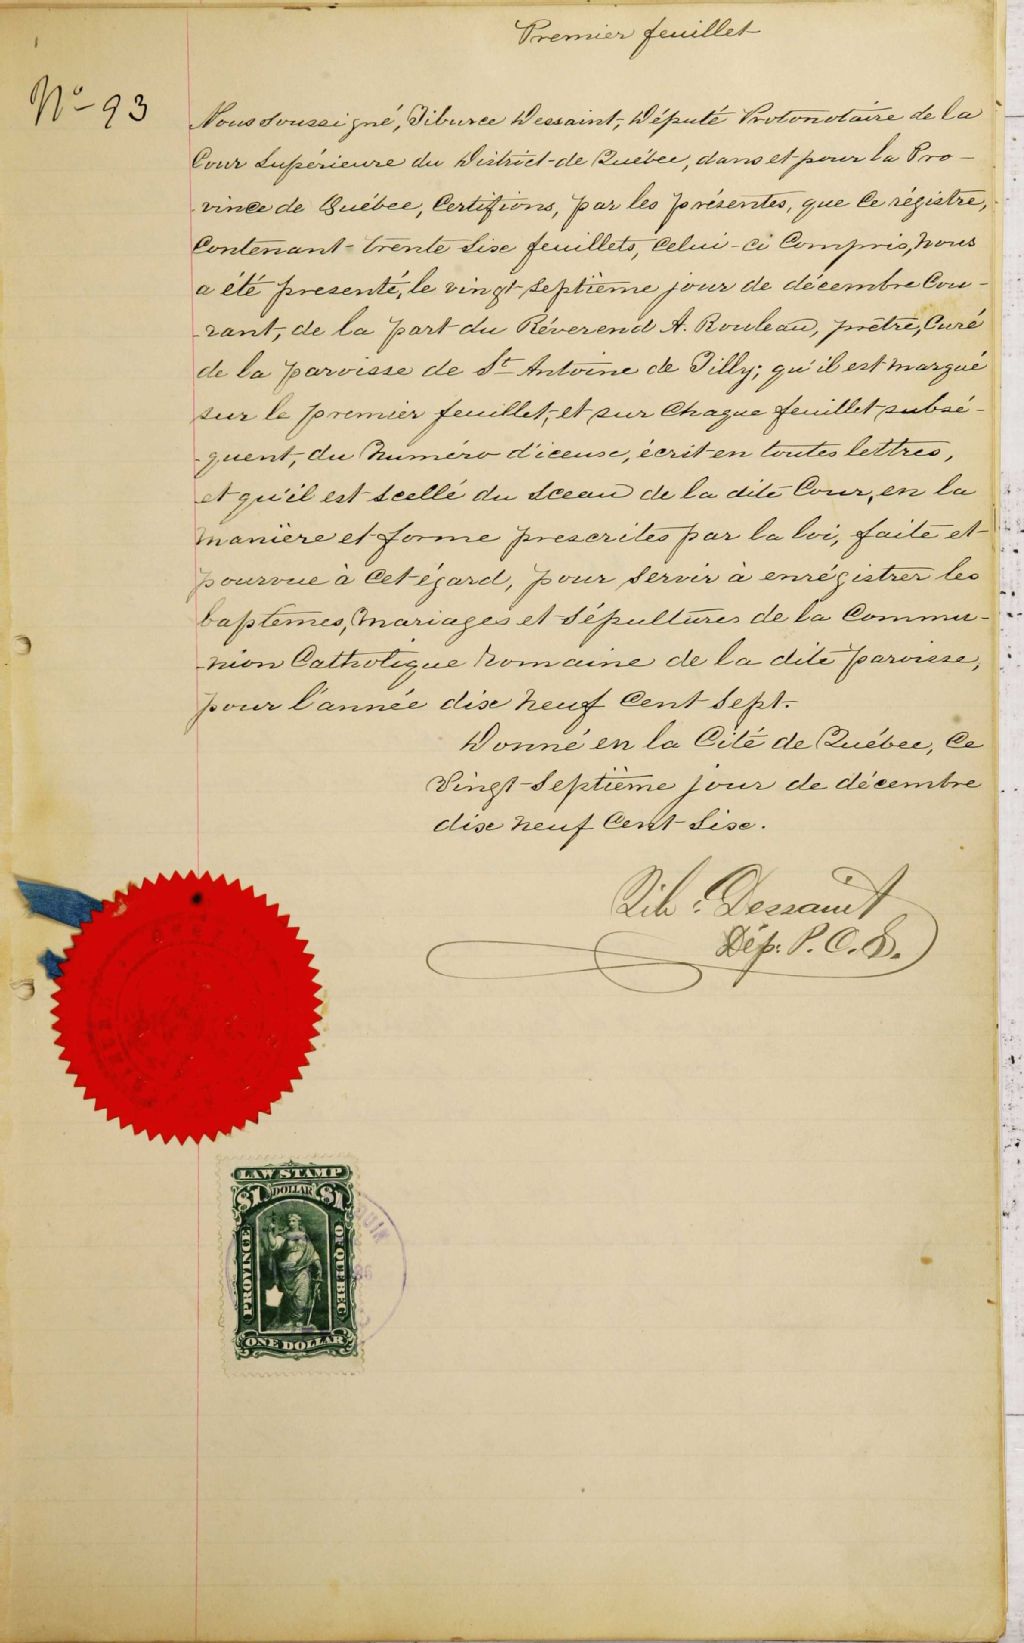 Premier feuillet
No 93
Nous soussigné, Tiburce Dessaint, Député Protonotaire de la
Cour Supérieure du District de Québec, dans et pour la Pro-
-vince de Québec, Certifions, par les présentes, que ce régistre,
contenant trente six feuillets, celui-ci compris, nous
a été presenté, le vingt septième jour de décembre cou-
-rant, de la part du Réverend A. Rouleau, prêtre, Curé
de la paroisse de St Antoine de Tilly; qu'il est marqué
sur le premier feuillet, et sur chaque feuillet subsé-
-quent, du numéro d'iceux, écrit en toutes lettres,
et qu'il est scellé du sceau de la dite Cour, en la
manière et forme prescrites par la loi, faite et
pourvue à cet égard, pour servir à enrégistrer les
baptêmes, mariages et sépultures de la Commu-
-nion Catholique Romaine de la dite paroisse,
pour l'année dix neuf cent sept.
Donné en la Cité de Québec, ce
vingt-septième jour de décembre
dix neuf cent six.
Tib. Dessaint
Dép. P. C. S.
LAW STAMP
$1 DOLLAR $1
PROVINCE OF QUEBEC
ONE DOLLAR